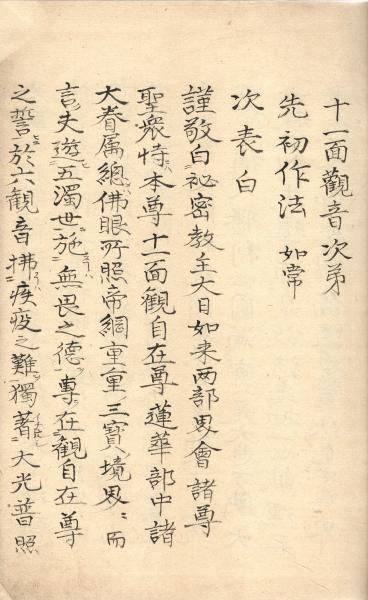 十一面觀音次第
先初作法 如常
次表白
謹敬白祕密教主大日如来两部界會諸尊
聖衆特本尊十一面觀自在尊蓮華部中諸
大眷属緫佛眼所照帝網重重三寶境界ニ而
言夫遊五濁世施無畏之德專在觀自在尊
之誓於六觀音拂疾疫之難獨著大光普照